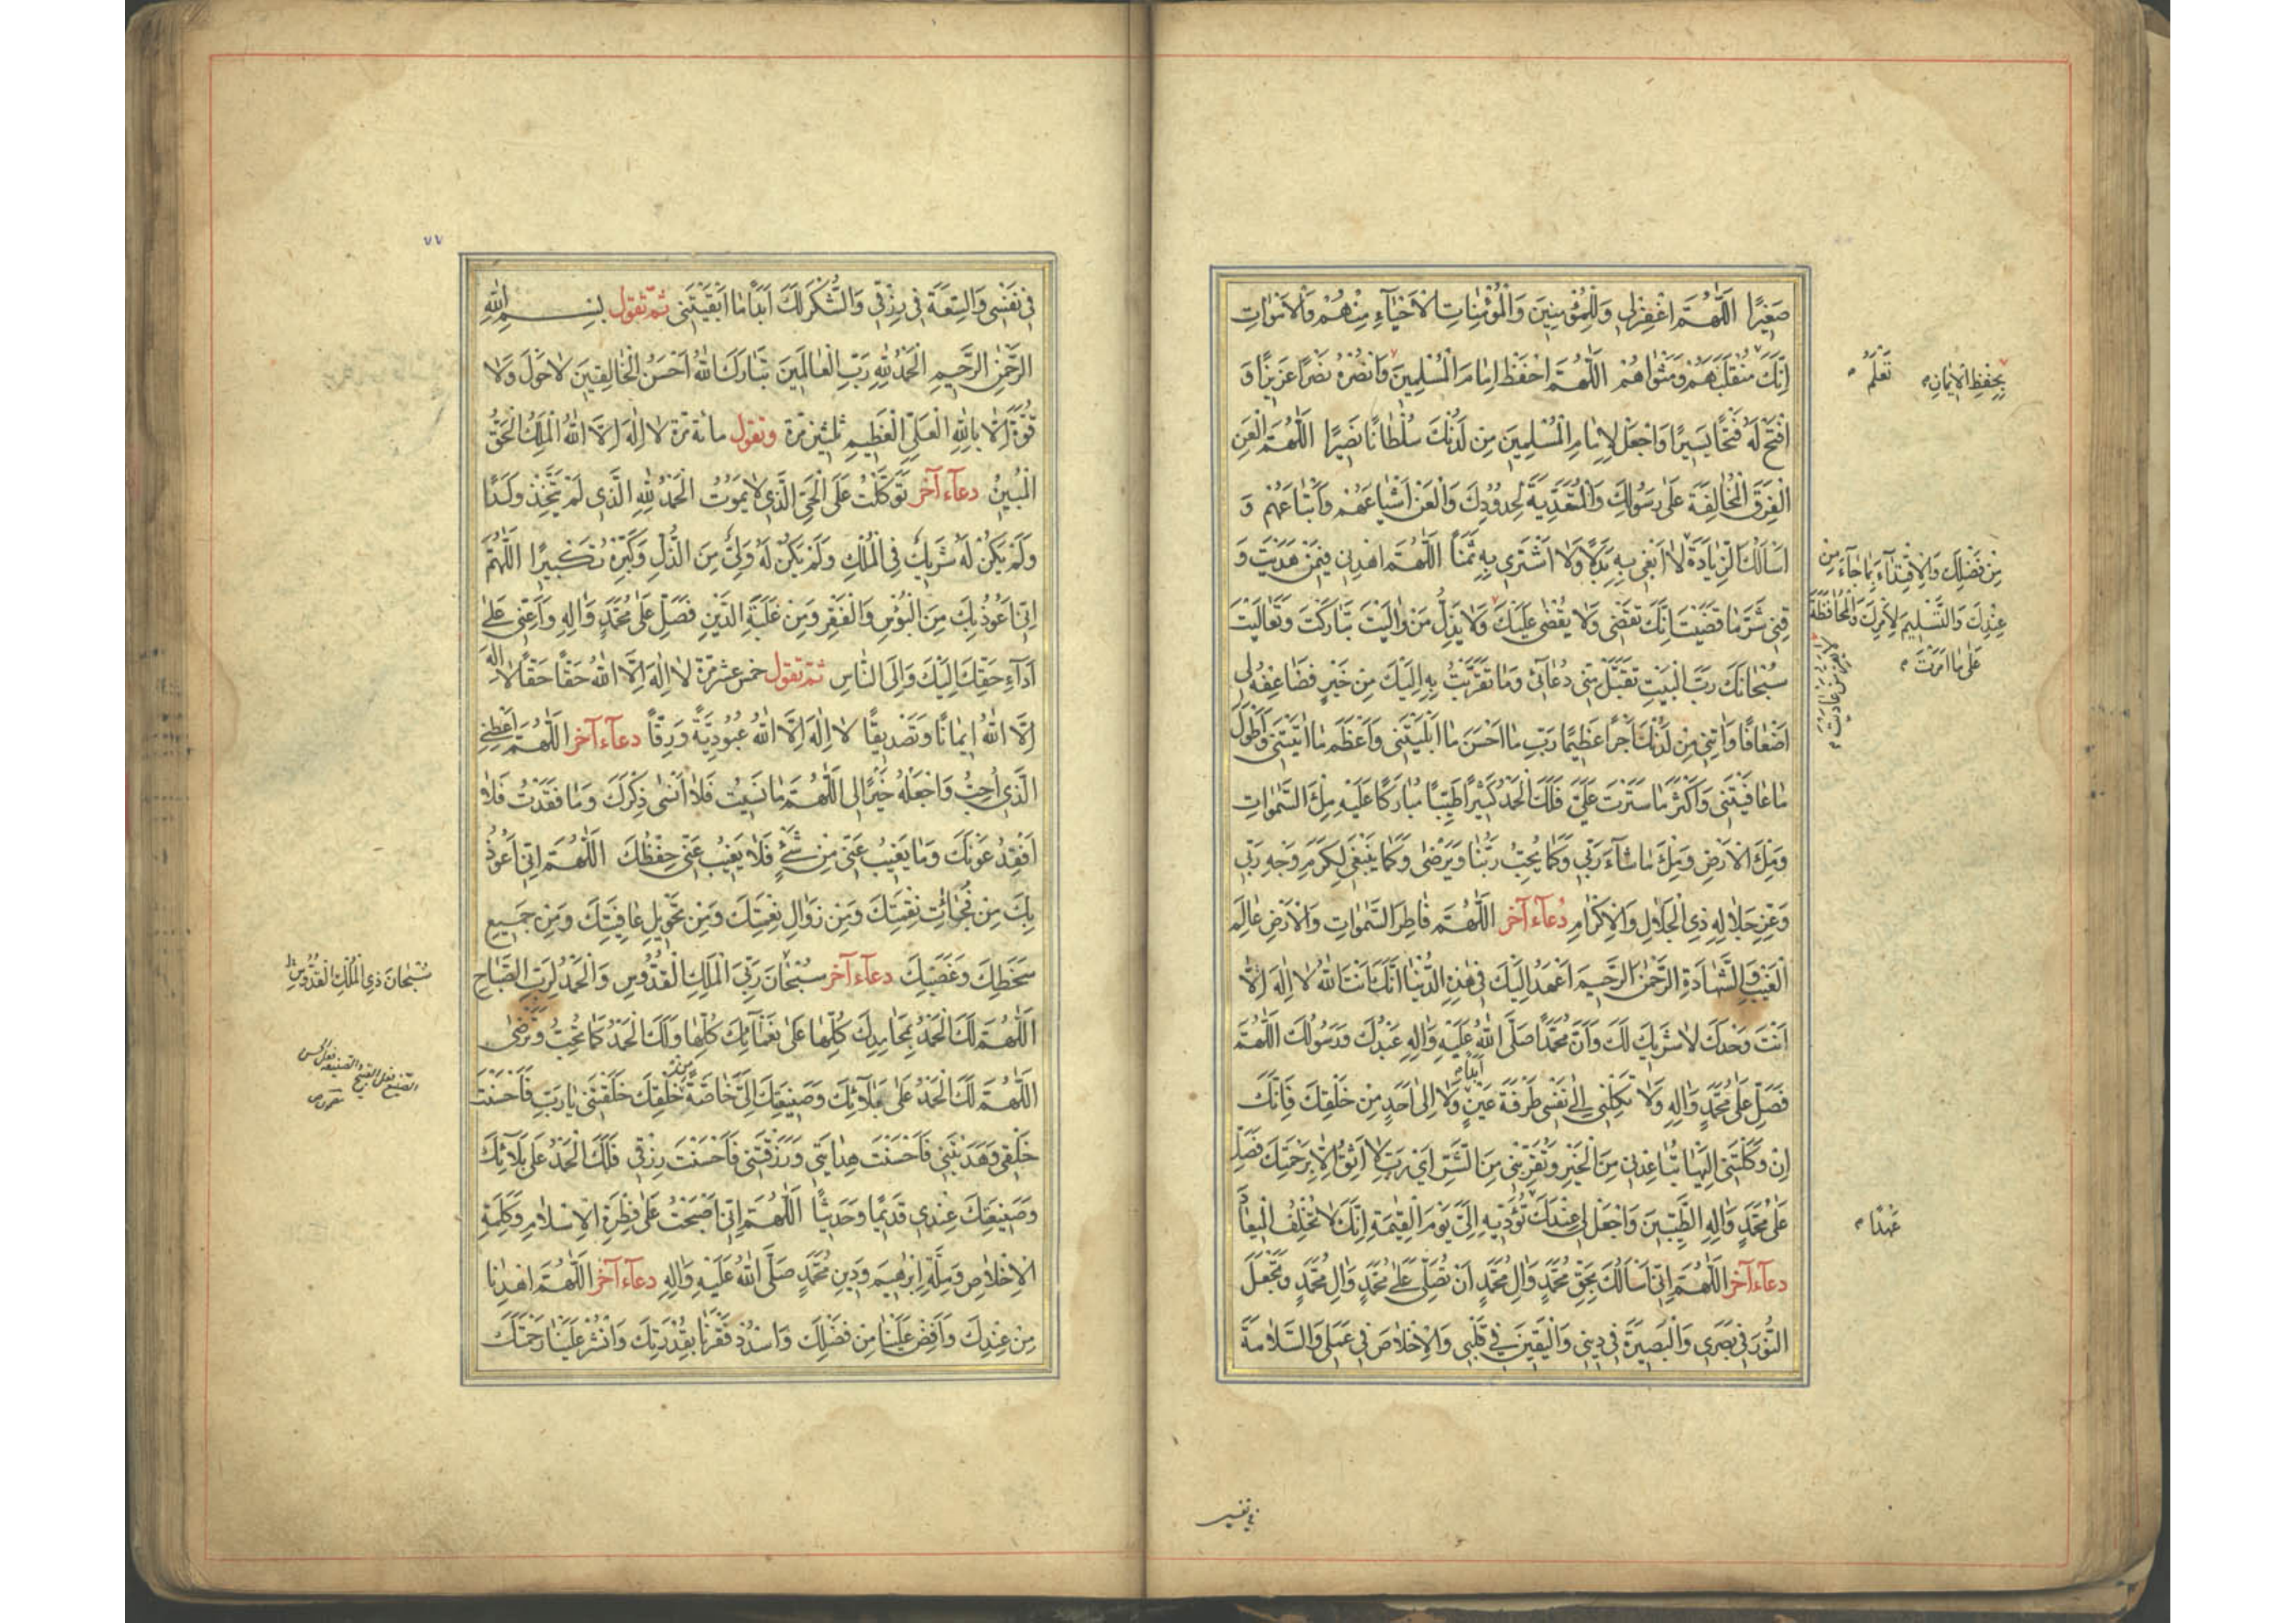 صَغِيرًا اَللّٰهُمَّ اغْفِرْ لِي وَلِلْمُؤْمِنِينَ وَالْمُؤْمِنَاتِ الْاَحْيَاءِ مِنْهُمْ وَالْاَمْوَاتِ
اِنَّكَ مُنْقَلَبَهُمْ وَمَثْوَاهُمْ اَللّٰهُمَّ احْفَظْ اِمَامَ الْمُسْلِمِينَ وَانْصُرْهُ نَصْرًا عَزِيزًا وَ
تَعْلَمُ
بِحِفْظِ الْاِيمَانِ
افْتَحْ لَهُ فَتْحًا يَسِيرًا وَاجْعَلْ لِاِمَامِ الْمُسْلِمِينَ مِنْ لَدُنْكَ سُلْطَانًا نَصِيرًا اَللّٰهُمَّ الْعَنِ
الْفِرَقَ الْمُخَالِفَةَ عَلٰى رَسُولِكَ وَالْمُتَعَدِّيَةَ لِحُدُودِكَ وَالْعَنْ اَشْيَاعَهُمْ وَاَتْبَاعَهُمْ وَ
اَسْاَلُكَ الزِّيَادَةَ لَا اَبْغِي بِهِ بَدَلًا وَلَا اَشْتَرِي بِهِ ثَمَنًا اَللّٰهُمَّ اهْدِنِي فِيمَنْ هَدَيْتَ وَ
مِنْ فَضْلِكَ وَالْاِقْتِدَاءَ بِمَا جَاءَ مِنْ
عِنْدِكَ وَالتَّسْلِيمَ لِاَمْرِكَ وَالْمُحَافَظَةَ
عَلٰى مَا اَمَرْتَ
قِنِي شَرَّ مَا قَضَيْتَ اِنَّكَ تَقْضِي وَلَا يُقْضٰى عَلَيْكَ وَلَا يَذِلُّ مَنْ وَالَيْتَ تَبَارَكْتَ وَتَعَالَيْتَ
وَلَا يَعِزُّ مَنْ عَادَيْتَ
سُبْحَانَكَ رَبَّ الْبَيْتِ تَقَبَّلْ مِنِّي دُعَائِي وَمَا تَقَرَّبْتُ بِهِ اِلَيْكَ مِنْ خَيْرٍ فَضَاعِفْهُ لِي
اَضْعَافًا وَآتِنِي مِنْ لَدُنْكَ اَجْرًا عَظِيمًا رَبِّ مَا اَحْسَنَ مَا اَبْلَيْتَنِي وَاَعْظَمَ مَا آتَيْتَنِي وَاَطْوَلَ
مَا عَافَيْتَنِي وَاَكْثَرَ مَا سَتَرْتَ عَلَيَّ فَلَكَ الْحَمْدُ كَثِيرًا طَيِّبًا مُبَارَكًا عَلَيْهِ مِلْءَ السَّمٰوَاتِ
وَمِلْءَ الْاَرْضِ وَمِلْءَ مَا شَاءَ رَبِّي وَكَمَا يُحِبُّ رَبُّنَا وَيَرْضٰى وَكَمَا يَنْبَغِي لِكَرَمِ وَجْهِ رَبِّي
وَعِزِّ جَلَالِهِ ذِي الْجَلَالِ وَالْاِكْرَامِ دُعَآء آخَر اَللّٰهُمَّ فَاطِرَ السَّمٰوَاتِ وَالْاَرْضِ عَالِمَ
الْغَيْبِ وَالشَّهَادَةِ الرَّحْمٰنَ الرَّحِيمَ اَعْهَدُ اِلَيْكَ فِي هٰذِهِ الدُّنْيَا اَنَّكَ اَنْتَ اللّٰهُ لَا اِلٰهَ اِلَّا
اَنْتَ وَحْدَكَ لَا شَرِيكَ لَكَ وَاَنَّ مُحَمَّدًا صَلَّى اللّٰهُ عَلَيْهِ وَآلِهِ عَبْدُكَ وَرَسُولُكَ اَللّٰهُمَّ
فَصَلِّ عَلٰى مُحَمَّدٍ وَآلِهِ وَلَا تَكِلْنِي اِلٰى نَفْسِي طَرْفَةَ عَيْنٍ اَبَدًا وَلَا اِلٰى اَحَدٍ مِنْ خَلْقِكَ فَاِنَّكَ
اِنْ وَكَلْتَنِي اِلَيْهَا تُبَاعِدْنِي مِنَ الْخَيْرِ وَتُقَرِّبْنِي مِنَ الشَّرِّ اَيْ رَبِّ لَا اَثِقُ اِلَّا بِرَحْمَتِكَ فَصَلِّ
عَلٰى مُحَمَّدٍ وَآلِهِ الطَّيِّبِينَ وَاجْعَلْ لِي عِنْدَكَ تُؤَدِّيهِ اِلَيَّ يَوْمَ الْقِيٰمَةِ اِنَّكَ لَا تُخْلِفُ الْمِيعَادَ
عَهْدًا
دعآء آخر اَللّٰهُمَّ اِنِّي اَسْاَلُكَ بِحَقِّ مُحَمَّدٍ وَآلِ مُحَمَّدٍ اَنْ تُصَلِّيَ عَلٰى مُحَمَّدٍ وَآلِ مُحَمَّدٍ وَتَجْعَلَ
النُّورَ فِي بَصَرِي وَالْبَصِيرَةَ فِي دِينِي وَالْيَقِينَ فِي قَلْبِي وَالْاِخْلَاصَ فِي عَمَلِي وَالسَّلَامَةَ
في نفسي
٧٧
فِي نَفْسِي وَالسِّعَةَ فِي رِزْقِي وَالشُّكْرَ لَكَ اَبَدًا مَا اَبْقَيْتَنِي ثُمَّ تَقُولُ بِسْمِ اللّٰهِ
الرَّحْمٰنِ الرَّحِيمِ اَلْحَمْدُ لِلّٰهِ رَبِّ الْعَالَمِينَ تَبَارَكَ اللّٰهُ اَحْسَنُ الْخَالِقِينَ لَا حَوْلَ وَلَا
قُوَّةَ اِلَّا بِاللّٰهِ الْعَلِيِّ الْعَظِيمِ ثلثين مرة وتقول مائة مرة لَا اِلٰهَ اِلَّا اللّٰهُ الْمَلِكُ الْحَقُّ
الْمُبِينُ دعآء آخر تَوَكَّلْتُ عَلَى الْحَيِّ الَّذِي لَا يَمُوتُ اَلْحَمْدُ لِلّٰهِ الَّذِي لَمْ يَتَّخِذْ وَلَدًا
وَلَمْ يَكُنْ لَهُ شَرِيكٌ فِي الْمُلْكِ وَلَمْ يَكُنْ لَهُ وَلِيٌّ مِنَ الذُّلِّ وَكَبِّرْهُ تَكْبِيرًا اَللّٰهُمَّ
اِنِّي اَعُوذُ بِكَ مِنَ الْبُؤْسِ وَالْفَقْرِ وَمِنْ غَلَبَةِ الدَّيْنِ فَصَلِّ عَلٰى مُحَمَّدٍ وَآلِهِ وَاَعِنِّي عَلٰى
اَدَاءِ حَقِّكَ اِلَيْكَ وَاِلَى النَّاسِ ثُمَّ تقول خمس عشر مرّة لَا اِلٰهَ اِلَّا اللّٰهُ حَقًّا حَقًّا لَا اِلٰهَ
اِلَّا اللّٰهُ اِيمَانًا وَتَصْدِيقًا لَا اِلٰهَ اِلَّا اللّٰهُ عُبُودِيَّةً وَرِقًّا دعآء آخر اَللّٰهُمَّ اَعْطِنِي
الَّذِي اُحِبُّ وَاجْعَلْهُ خَيْرًا لِي اَللّٰهُمَّ مَا نَسِيتُ فَلَا اَنْسٰى ذِكْرَكَ وَمَا فَقَدْتُ فَلَا
اَفْقِدُ عَوْنَكَ وَمَا يَغِيبُ عَنِّي مِنْ شَيْءٍ فَلَا يَغِيبُ عَنِّي حِفْظُكَ اَللّٰهُمَّ اِنِّي اَعُوذُ
بِكَ مِنْ فُجْاَةِ نِقْمَتِكَ وَمِنْ زَوَالِ نِعْمَتِكَ وَمِنْ تَحْوِيلِ عَافِيَتِكَ وَمِنْ جَمِيعِ
سَخَطِكَ وَغَضَبِكَ دعآء آخر سُبْحَانَ رَبِّيَ الْمَلِكِ الْقُدُّوسِ وَالْحَمْدُ لِرَبِّ الصَّبَاحِ
سُبْحَانَ ذِي الْمُلْكِ الْقُدُّوسِ
اَللّٰهُمَّ لَكَ الْحَمْدُ بِمَحَامِدِكَ كُلِّهَا عَلٰى نَعْمَائِكَ كُلِّهَا وَلَكَ الْحَمْدُ كَمَا تُحِبُّ وَتَرْضٰى
اَللّٰهُمَّ لَكَ الْحَمْدُ عَلٰى بَلَائِكَ وَصَنِيعَتِكَ اِلَيَّ خَاصَّةً خَلْقِكَ خَلَقْتَنِي يَا رَبِّ فَاَحْسَنْتَ
خَلْقِي وَهَدَيْتَنِي فَاَحْسَنْتَ هِدَايَتِي وَرَزَقْتَنِي فَاَحْسَنْتَ رِزْقِي فَلَكَ الْحَمْدُ عَلٰى بَلَائِكَ
وَصَنِيعَتِكَ عِنْدِي قَدِيمًا وَحَدِيثًا اَللّٰهُمَّ اِنِّي اَصْبَحْتُ عَلٰى فِطْرَةِ الْاِسْلَامِ وَكَلِمَةِ
الْاِخْلَاصِ وَمِلَّةِ اِبْرٰهِيمَ وَدِينِ مُحَمَّدٍ صَلَّى اللّٰهُ عَلَيْهِ وَآلِهِ دعآء آخر اَللّٰهُمَّ اهْدِنَا
مِنْ عِنْدِكَ وَاَفِضْ عَلَيْنَا مِنْ فَضْلِكَ وَاسْدُدْ فَقْرَنَا بِقُدْرَتِكَ وَانْشُرْ عَلَيْنَا رَحْمَتَكَ